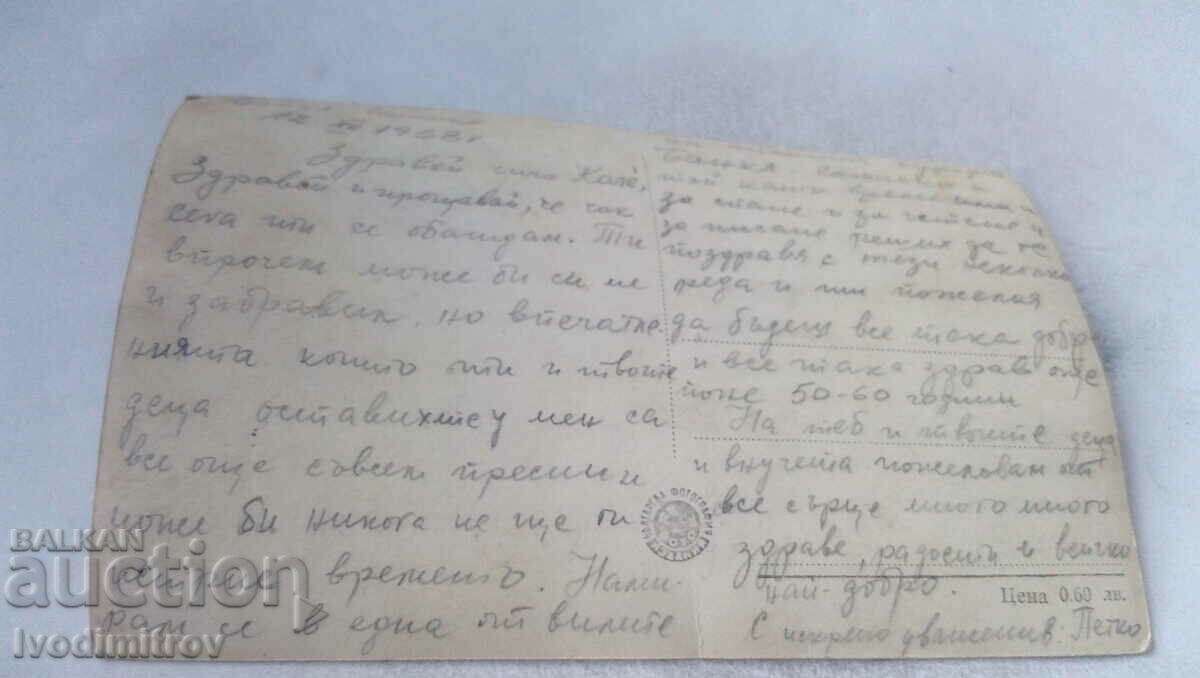 Здравей чичо Коле,
Здравей и прощавай, че чак
сега ти се обаждам. Ти
впрочем може би си ме
и забравил, но впечатле
нията които ти и твоите
деца оставихте у мен са
все още съвсем пресни и
може би никога не ще ги
времето. Нами-
рам се в една от вилите
за писане реших да те
поздравя с тези няколко
реда и ти пожелая
да бъдеш все така добр
и все така здрав още
поне 50-60 години
На теб и твоите деца
и внучета пожелавам от
все сърце много много
здраве, радости и всичко
най-добро.
С искрено уважение: Петко
БЪЛГАРСКА ФОТОГРАФИЯ
Цена 0.60 лв.
BALKAN
auction
Ivodimitrov